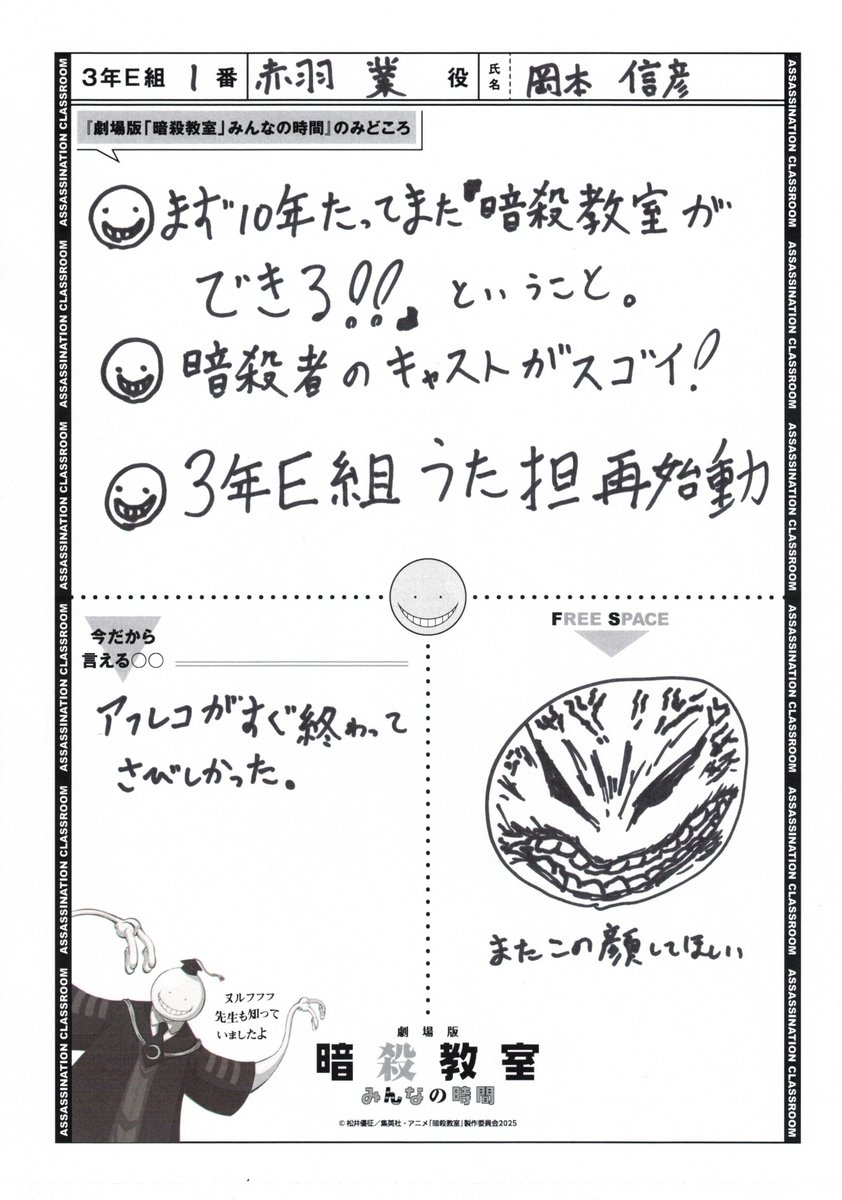 3年E組 1番 赤羽 業 役 氏名 岡本 信彦
『劇場版「暗殺教室」みんなの時間』のみどころ
まず10年たってまた『暗殺教室が
できる!!』ということ。
暗殺者のキャストがスゴイ!
3年E組 うた担 再始動
今だから
言える○○
アフレコがすぐ終わって
さびしかった。
FREE SPACE
またこの顔してほしい
ヌルフフフ
先生も知って
いましたよ
劇場版
暗殺教室
みんなの時間
© 松井優征/集英社・アニメ「暗殺教室」製作委員会2025
ASSASSINATION CLASSROOM ASSASSINATION CLASSROOM ASSASSINATION CLASSROOM ASSASSINATION CLASSROOM ASSASSINATION CLASSROOM ASSASSINATION CLASSROOM
ASSASSINATION CLASSROOM ASSASSINATION CLASSROOM ASSASSINATION CLASSROOM ASSASSINATION CLASSROOM ASSASSINATION CLASSROOM ASSASSINATION CLASSROOM